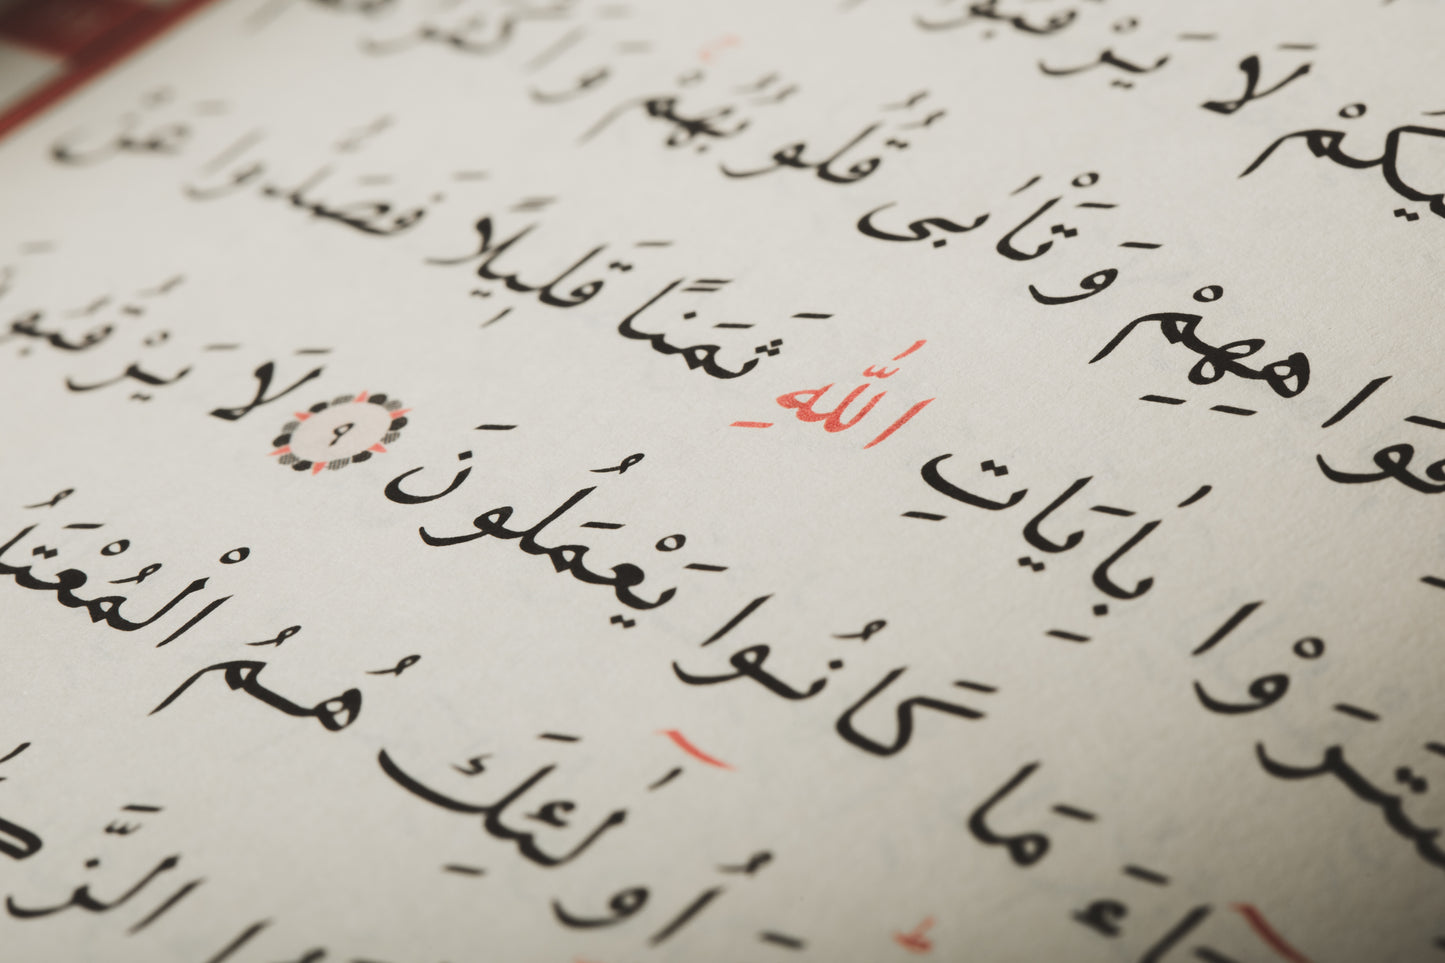 لَا يَرْقُبُوا
وَاهِهِمْ وَتَأْبٰى قُلُوبُهُمْ وَاَكْثَرُ
شْتَرَوْا بِاٰيَاتِ اللّٰهِ ثَمَنًا قَلِيلًا فَصَدُّوا عَنْ
مَا كَانُوا يَعْمَلُونَ ٩ لَا يَرْقُبُو
اُولٰئِكَ هُمُ الْمُعْتَدُ
الزَّكٰ